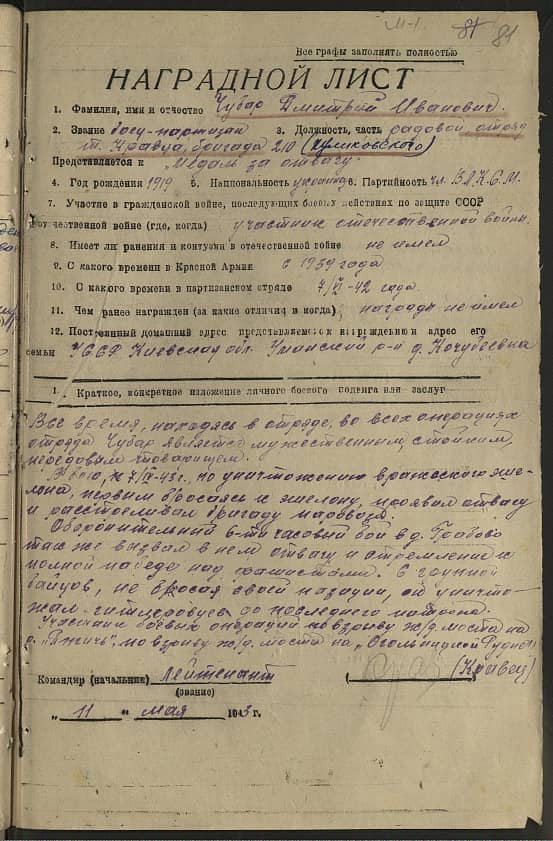 М-1 81 81
Все графы заполнять полностью
НАГРАДНОЙ ЛИСТ
1. Фамилия, имя и отчество Чубар Дмитрий Иванович.
2. Звание боец-партизан 3. Должность, часть рядовой отряд
т. Кравца, бригада 210 (Куликовского)
Представляется к Медаль за отвагу.
4. Год рождения 1919 5. Национальность украинц 6. Партийность чл. ВЛКСМ
7. Участие в гражданской войне, последующих боевых действиях по защите СССР
отечественной войне (где, когда) участник отечественной войны
8. Имеет ли ранения и контузии в отечественной войне не имел
9. С какого времени в Красной Армия с 1939 года
10. С какого времени в партизанском отряле 7/VI-42 года
11. Чем ранее награжден (за какие отличия и когда) награды не имел
12. Постоянный домашний адрес представляемого к награждению и адрес его
семьи УССР Киевская обл. Уманский р-н д. Кочубеевка
1. Краткое, конкретное изложение личного боевого подвига или заслуг
Все время, находясь в отряде, во всех операциях
отряда Чубар является мужественным, стойким,
передовым товарищем.
В бою, 7/IV-43г., по уничтожению вражеского эше-
лона, первым бросаясь к эшелону, проявил отвагу
и расстреливал бригаду паровоза.
Оборонительный 6-ти часовой бой в д. Грабово
так же вызвал в нем отвагу и стремление к
полной победе над фашистами. С группой
бойцов, не бросая своей позиции, он уничто-
жал гитлеровцев до последнего патрона.
Участник боевых операций по взрыву ж/д. моста на
р. "Птичь", по взрыву ж/д. моста на
Командир (начальник) Лейтенант (Кравец)
(звание)
"11" мая 1943 г.